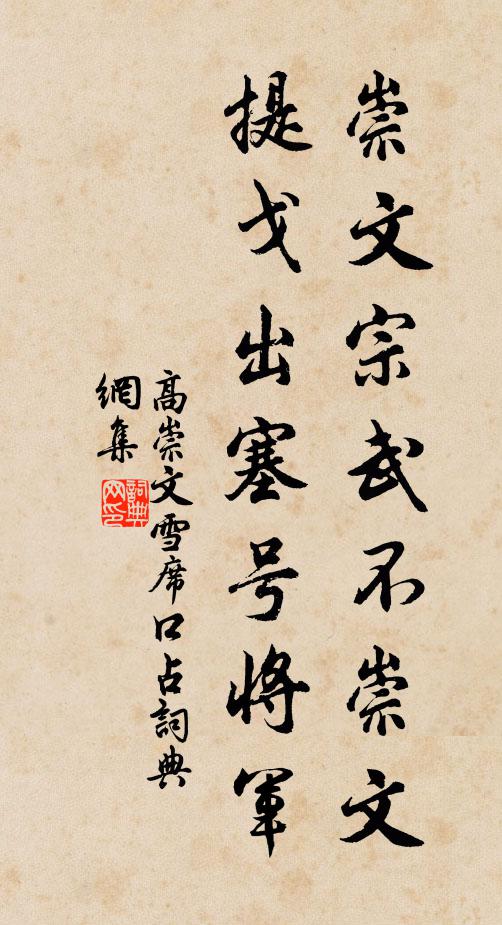 崇文宗武不崇文
提戈出塞号將軍
高崇文雪席口占詞典
網集
詞典
网印